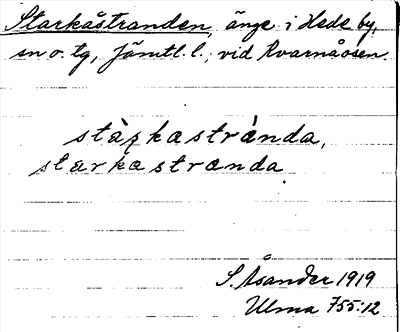 Starkåstranden, änge i Hede by,
sn o. tg, Jämtl. l., vid Kvarnåosen.
stàrkastrànda,
starkastranda
S. Åsander 1919
Ulma 755:12